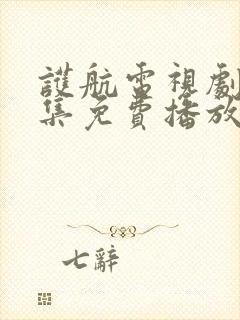 護航電視劇
集免費播放
七辭